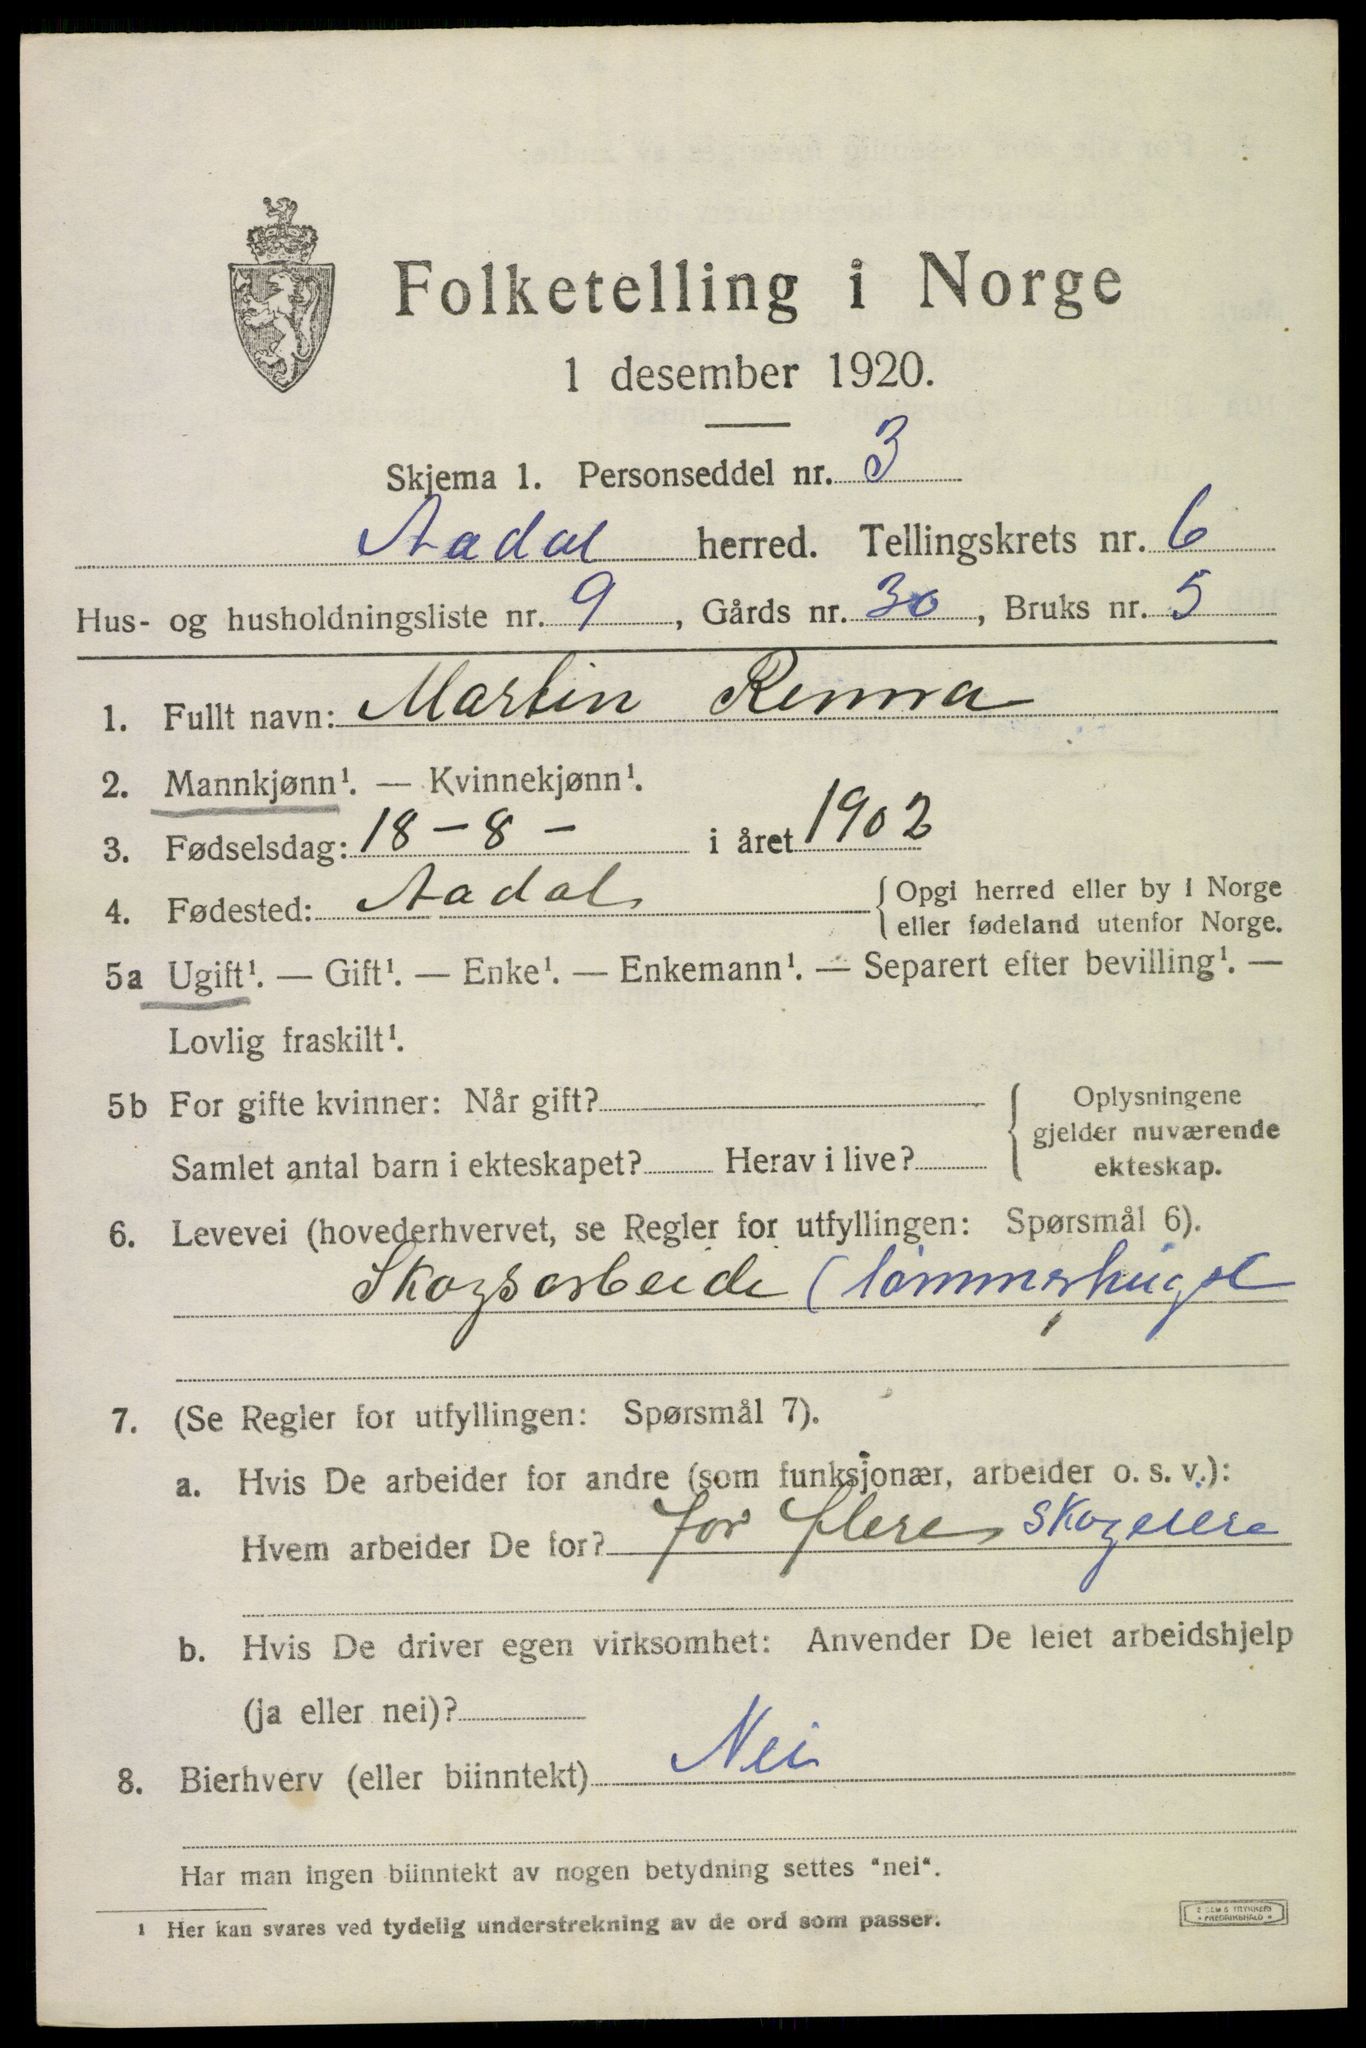 Folketelling i Norge
1 desember 1920.
Skjema 1. Personseddel nr. 3
Aadal herred. Tellingskrets nr. 6
Hus- og husholdningsliste nr. 9, Gårds nr. 30, Bruks nr. 5
1. Fullt navn: Martin Renna
2. Mannkjønn¹. — Kvinnekjønn¹.
3. Fødselsdag: 18 - 8 - i året 1902
4. Fødested: Aadal { Opgi herred eller by i Norge
eller fødeland utenfor Norge.
5a Ugift¹. — Gift¹. — Enke¹. — Enkemann¹. — Separert efter bevilling¹. —
Lovlig fraskilt¹.
5b For gifte kvinner: Når gift? { Oplysningene
gjelder nuværende
Samlet antal barn i ekteskapet? Herav i live? ekteskap.
6. Levevei (hovederhvervet, se Regler for utfyllingen: Spørsmål 6).
Skogsarbeide (tømmerhugst
7. (Se Regler for utfyllingen: Spørsmål 7).
a. Hvis De arbeider for andre (som funksjonær, arbeider o. s. v.):
Hvem arbeider De for? for flere skogeiere
b. Hvis De driver egen virksomhet: Anvender De leiet arbeidshjelp
(ja eller nei)?
8. Bierhverv (eller biinntekt) Nei
Har man ingen biinntekt av nogen betydning settes "nei".
¹ Her kan svares ved tydelig understrekning av de ord som passer.
TRYKKERI
FREDRIKSHALD